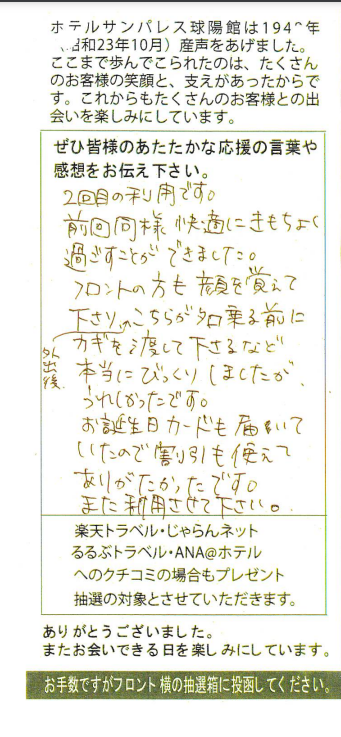 ホテルサンパレス球陽館は194 年
昭和23年10月）産声をあげました。
ここまで歩んでこられたのは、たくさん
のお客様の笑顔と、支えがあったからで
す。これからもたくさんのお客様との出
会いを楽しみにしています。
ぜひ皆様のあたたかな応援の言葉や
感想をお伝え下さい。
2回目の利用です。
前回同様 快適にきもちよく
過ごすことができました。
フロントの方も 顔を覚えて
下さり、こちらが名乗る前に
外出後、
カギを渡して下さるなど
本当にびっくりしましたが、
うれしかったです。
お誕生日カードも届いて
いたので割引も使えて
ありがたかったです。
また利用させて下さい。
楽天トラベル・じゃらんネット
るるぶトラベル・ANA@ホテル
へのクチコミの場合もプレゼント
抽選の対象とさせていただきます。
ありがとうございました。
またお会いできる日を楽しみにしています。
お手数ですがフロント横の抽選箱に投函してください。